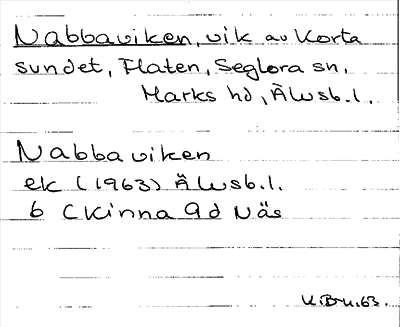 Nabbaviken, vik av Korta
sundet, Flaten, Seglora sn,
Marks hd, Älvsb.l.
Nabbaviken
ek (1963) Älvsb.l.
6 Ckinna 9d Näs
K.Br.K.63.